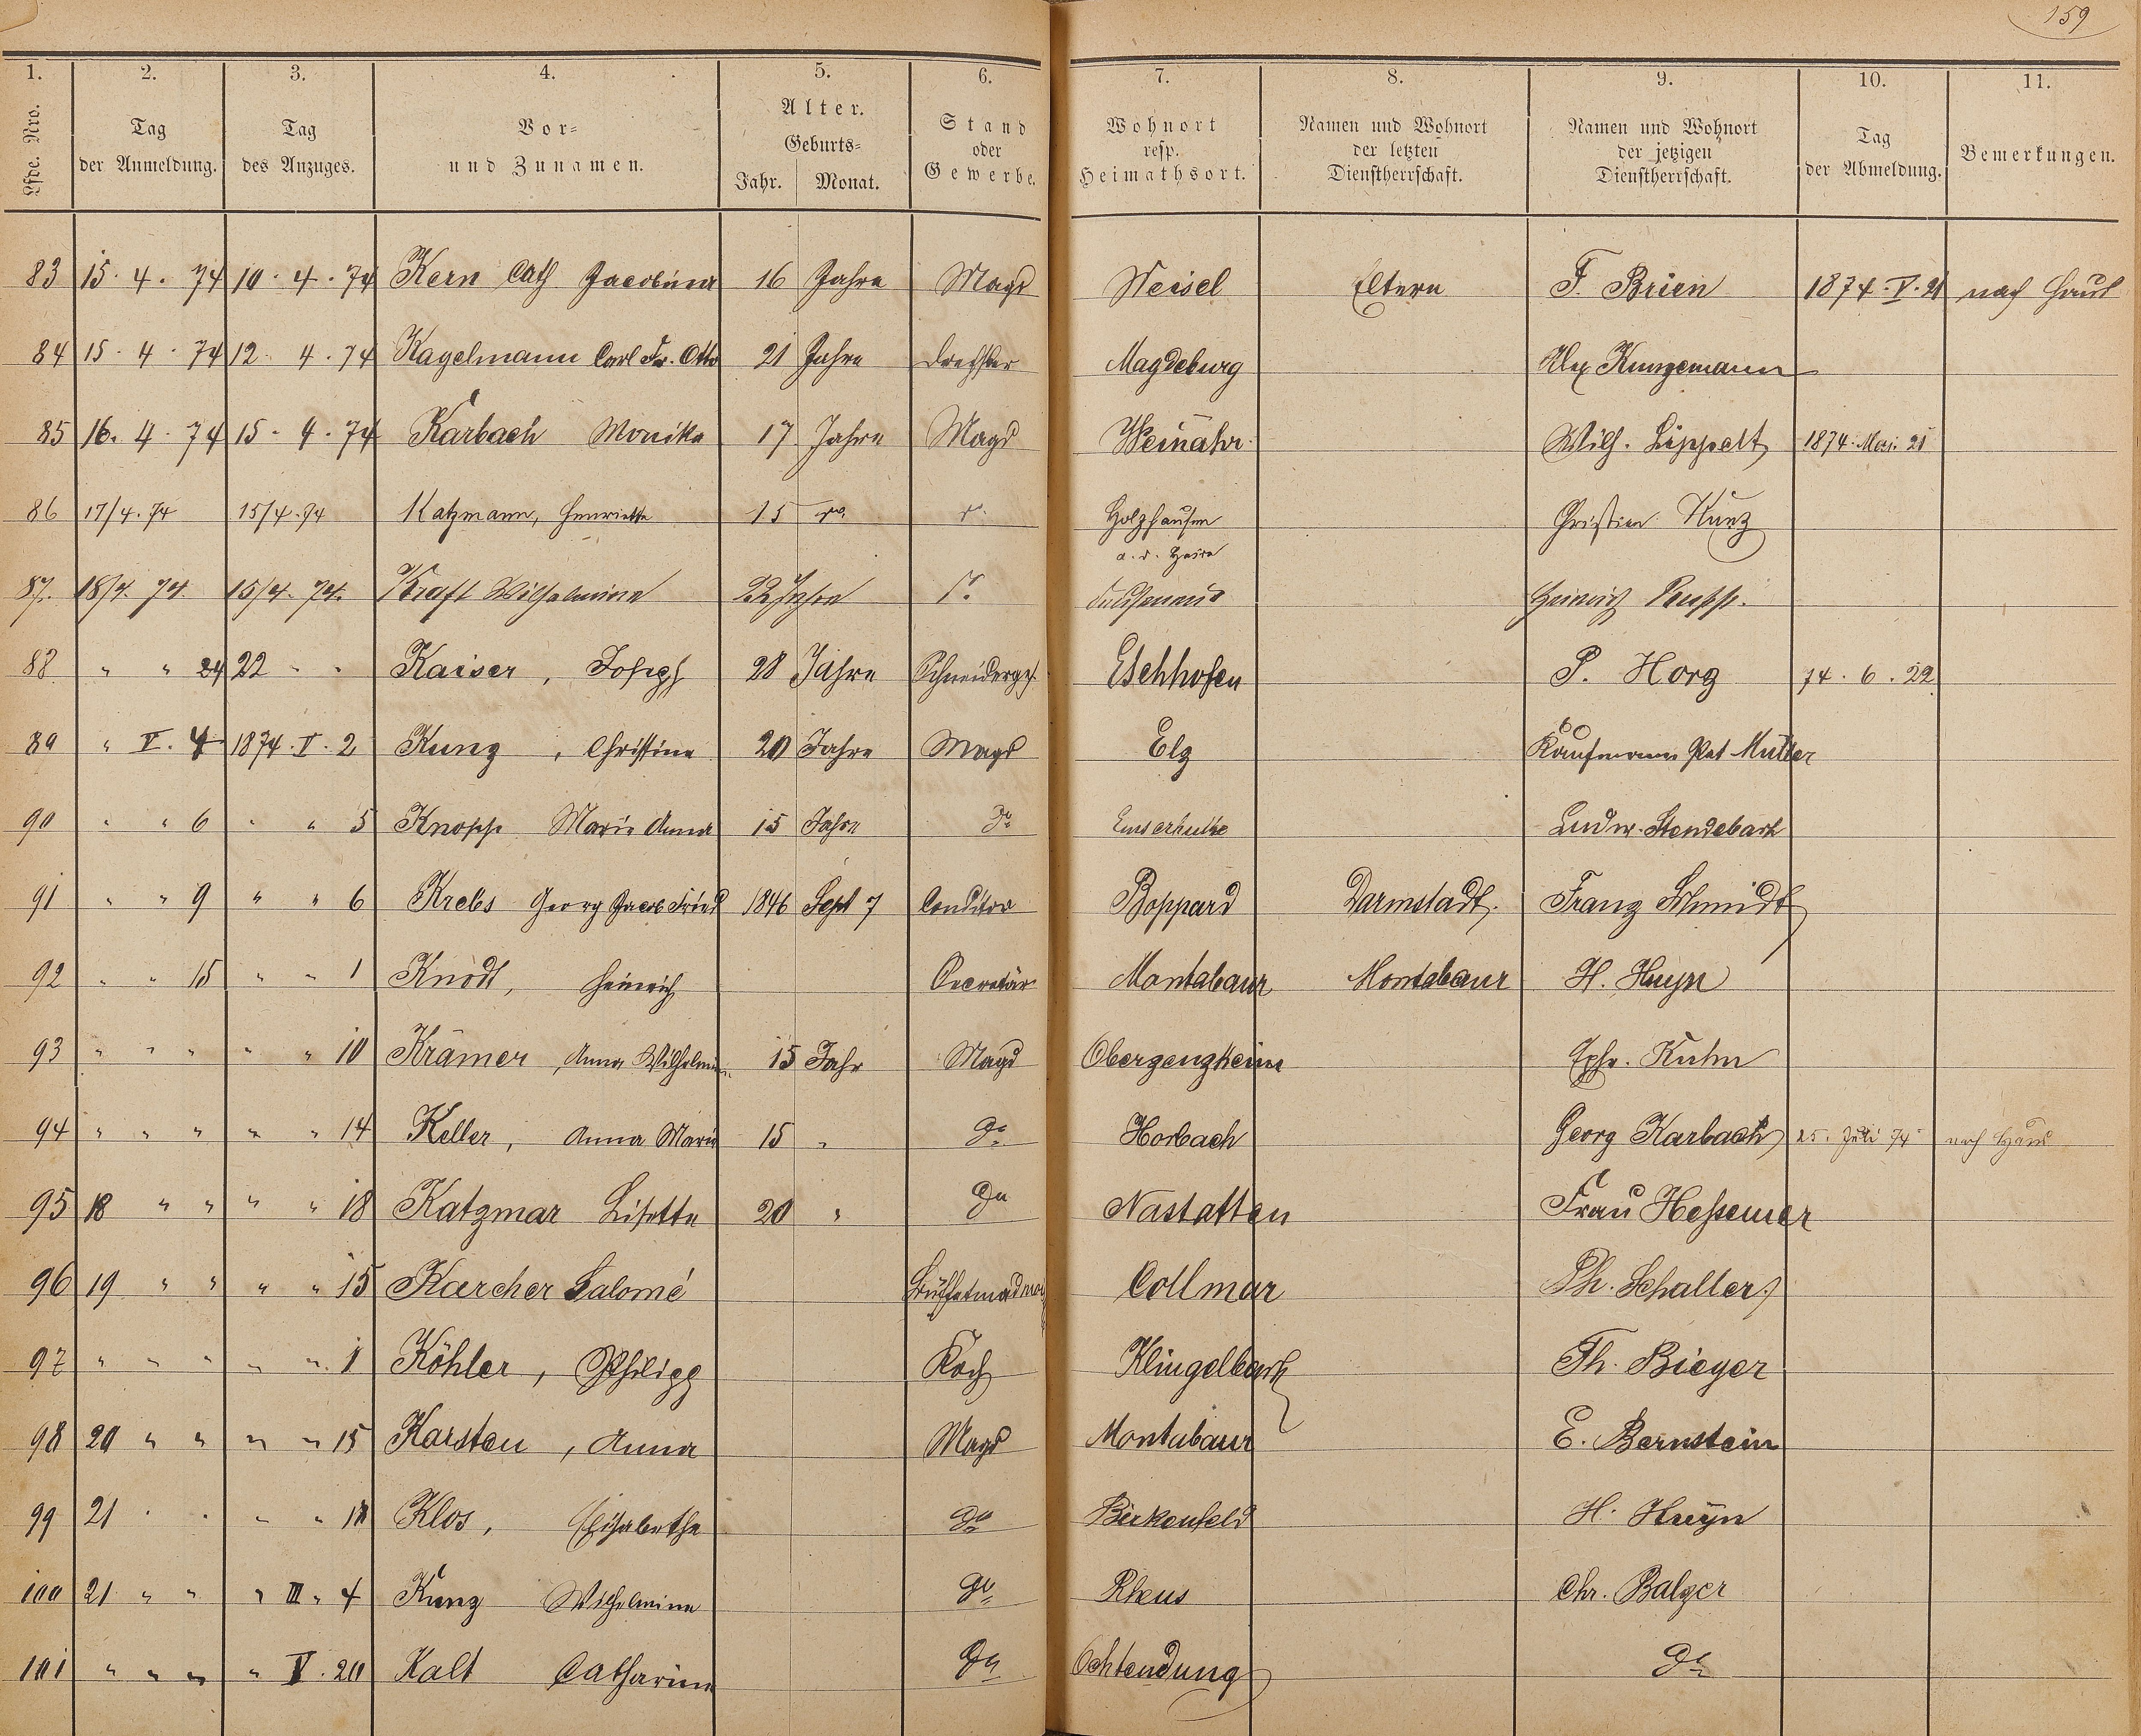 159
1. 2. 3. 4. 5. 6. 7. 8. 9. 10. 11.
Lfde. Nro. Tag der Anmeldung. Tag des Anzuges. Vor- und Zunamen. Alter. Geburts- Jahr. Monat. Stand oder Gewerbe. Wohnort resp. Heimathsort. Namen und Wohnort der letzten Dienstherrschaft. Namen und Wohnort der jetzigen Dienstherrschaft. Tag der Abmeldung. Bemerkungen.
83 15. 4. 74 10. 4. 74 Kern Cath Jacobina 16 Jahre Magd Weisel Eltern F. Brien 1874. V. 21 nach Haus
84 15. 4. 74 12. 4. 74 Kagelmann Carl Fr. Otto 21 Jahre Drechsler Magdeburg Alex Kunzemann
85 16. 4. 74 15. 4. 74 Karbach Monika 17 Jahre Magd Weinähr Wilh. Lippelt 1874. Mai. 21
86 17/4. 74 15/4. 74 Katzmann, Henriette 15 do. do. Holzhausen a. d. Haide Christian Kunz
87. 18/4. 74. 15/4. 74. Kraft Wilhelmine 22 Jahre do. Heinrich Rupp.
88 " " 24 22 " " Kaiser, Joseph 28 Jahre Schneiderges. Eschhofen P. Horg 74. 6. 22
89 " V. 4 1874. V. 2 Kunz, Christine 20 Jahre Magd Elz Kaufmann Pet Müller
90 " " 6 " " 5 Knopp Marie Anna 15 Jahre do Emserhütte Ludw. Stendebach
91 " " 9 " " 6 Krebs Georg Jacob Fried 1846 Sept 7 Conditor Boppard Darmstadt. Franz Schmidt
92 " " 15 " " 1 Knödt, Heinrich Secretär Montabaur Montabaur H. Huyn
93 " " " " " 10 Krämer, Anna Wilhelmin 15 Jahr Magd Obergenzheim Ephr. Kuhn
94 " " " " " 14 Keller, Anna Marie 15 " do Horbach Georg Karbach 25. Juli 74 nach Haus
95 18 " " " " 18 Katzmar Lisette 20 " do Nastatten Frau Hessemer
96 19 " " " " 15 Kaercher Salomé Collmar Ph. Schaller
97 " " " " " 1 Köhler, Philipp Koch Klingelbach Th. Bieger
98 20 " " " " 15 Karsten, Anna Magd Montabaur E. Bernstein
99 21 " " " " 18 Klos, Elisabethe do Birkenfeld H. Huyn
100 21 " " " III " 4 Kunz Wilhelmine do Rhens Chr. Balzer
101 " " " " V. 20 Kalt Catharina do Ochtendung do